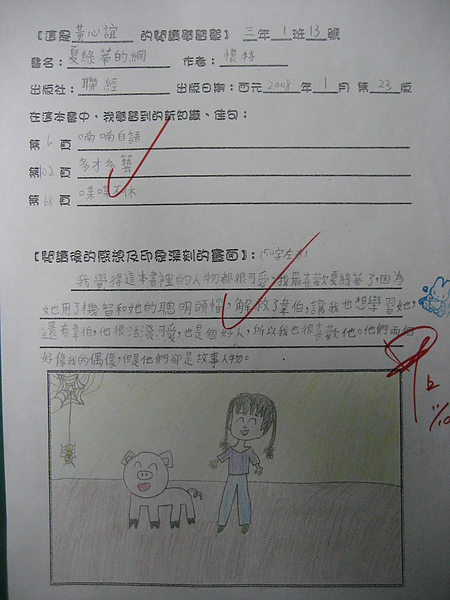 【這是黃心誼 的閱讀學習單】 三年 1 班 13 號
書名：夏綠蒂的網 作者：懷特
出版社：聯經 出版日期：西元 2008 年 1 月 第 23 版
在這本書中，我學習到的新知識、佳句：
第 6 頁 喃喃自語
第102頁 多才多藝
第 68 頁 喋喋不休
【閱讀後的感想及印象深刻的畫面】：(50字左右)
我覺得這本書裡的人物都很可愛，我最喜歡夏綠蒂了，因為
她用了機智和她的聰明頭腦，解救了韋伯，讓我也想學習她，
還有韋伯，他很活潑可愛，也是個好人，所以我也很喜歡他。他們兩個
好像我的偶像，但是他們卻是故事人物。